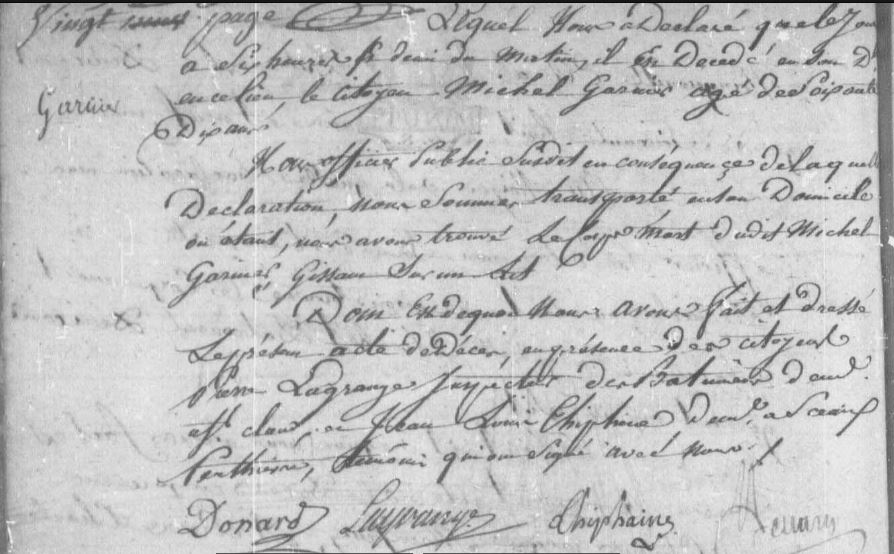 Vingt page Lequel Nous a Declaré que le Jour
a Six heures & demi du Matin, il En Decedé en son D
en ce lieu, le Citoyen Michel Garnier agé de Soixante
Garnier
Dix ans
Nous officier Public Susdit en conséquence de Laquelle
Declaration, nous Sommes transporté en son Domicile
où étant, nous avons trouvé Le Corps mort dudit Michel
Garnier Gissant Sur un Lit
Dont Et de quoi Nous avons fait et dressé
Le présent acte de Décès, en présence des citoyens
Pierre Lagrange Inspecteur des Batiments demt
à St claud, et Jean Louis Chiphaine demt a Sceaux
Penthievre, témoins qui ont Signé avec nous
Donard Lagrange Chiphaine